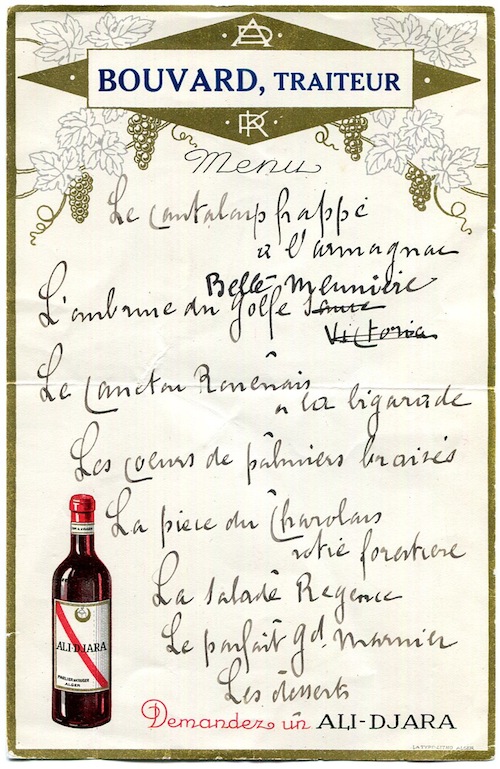 BOUVARD, TRAITEUR
Menu
Le cantaloup frappé
à l'armagnac
Belle Meunière
L'ombrine du Golfe Sauce
Victoria
Le Caneton Rouennais
à la bigarade
Les coeurs de palmiers braisés
La pièce du Charolais
rotie forestiere
La salade Regence
Le parfait Gd. Marnier
Les desserts
ALI-DJARA
ALGER
Demandez un ALI-DJARA
LA TYPO-LITHO ALGER